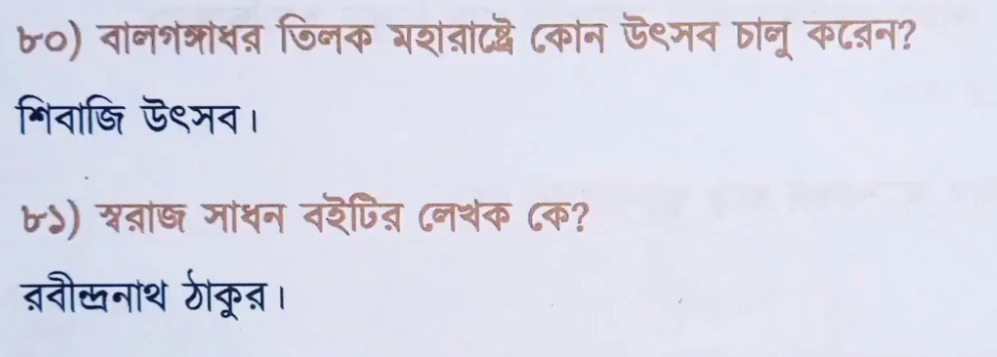 ৮০) বালগঙ্গাধর তিলক মহারাষ্ট্রে কোন উৎসব চালু করেন?
শিবাজি উৎসব।
৮১) স্বরাজ সাধন বইটির লেখক কে?
রবীন্দ্রনাথ ঠাকুর।